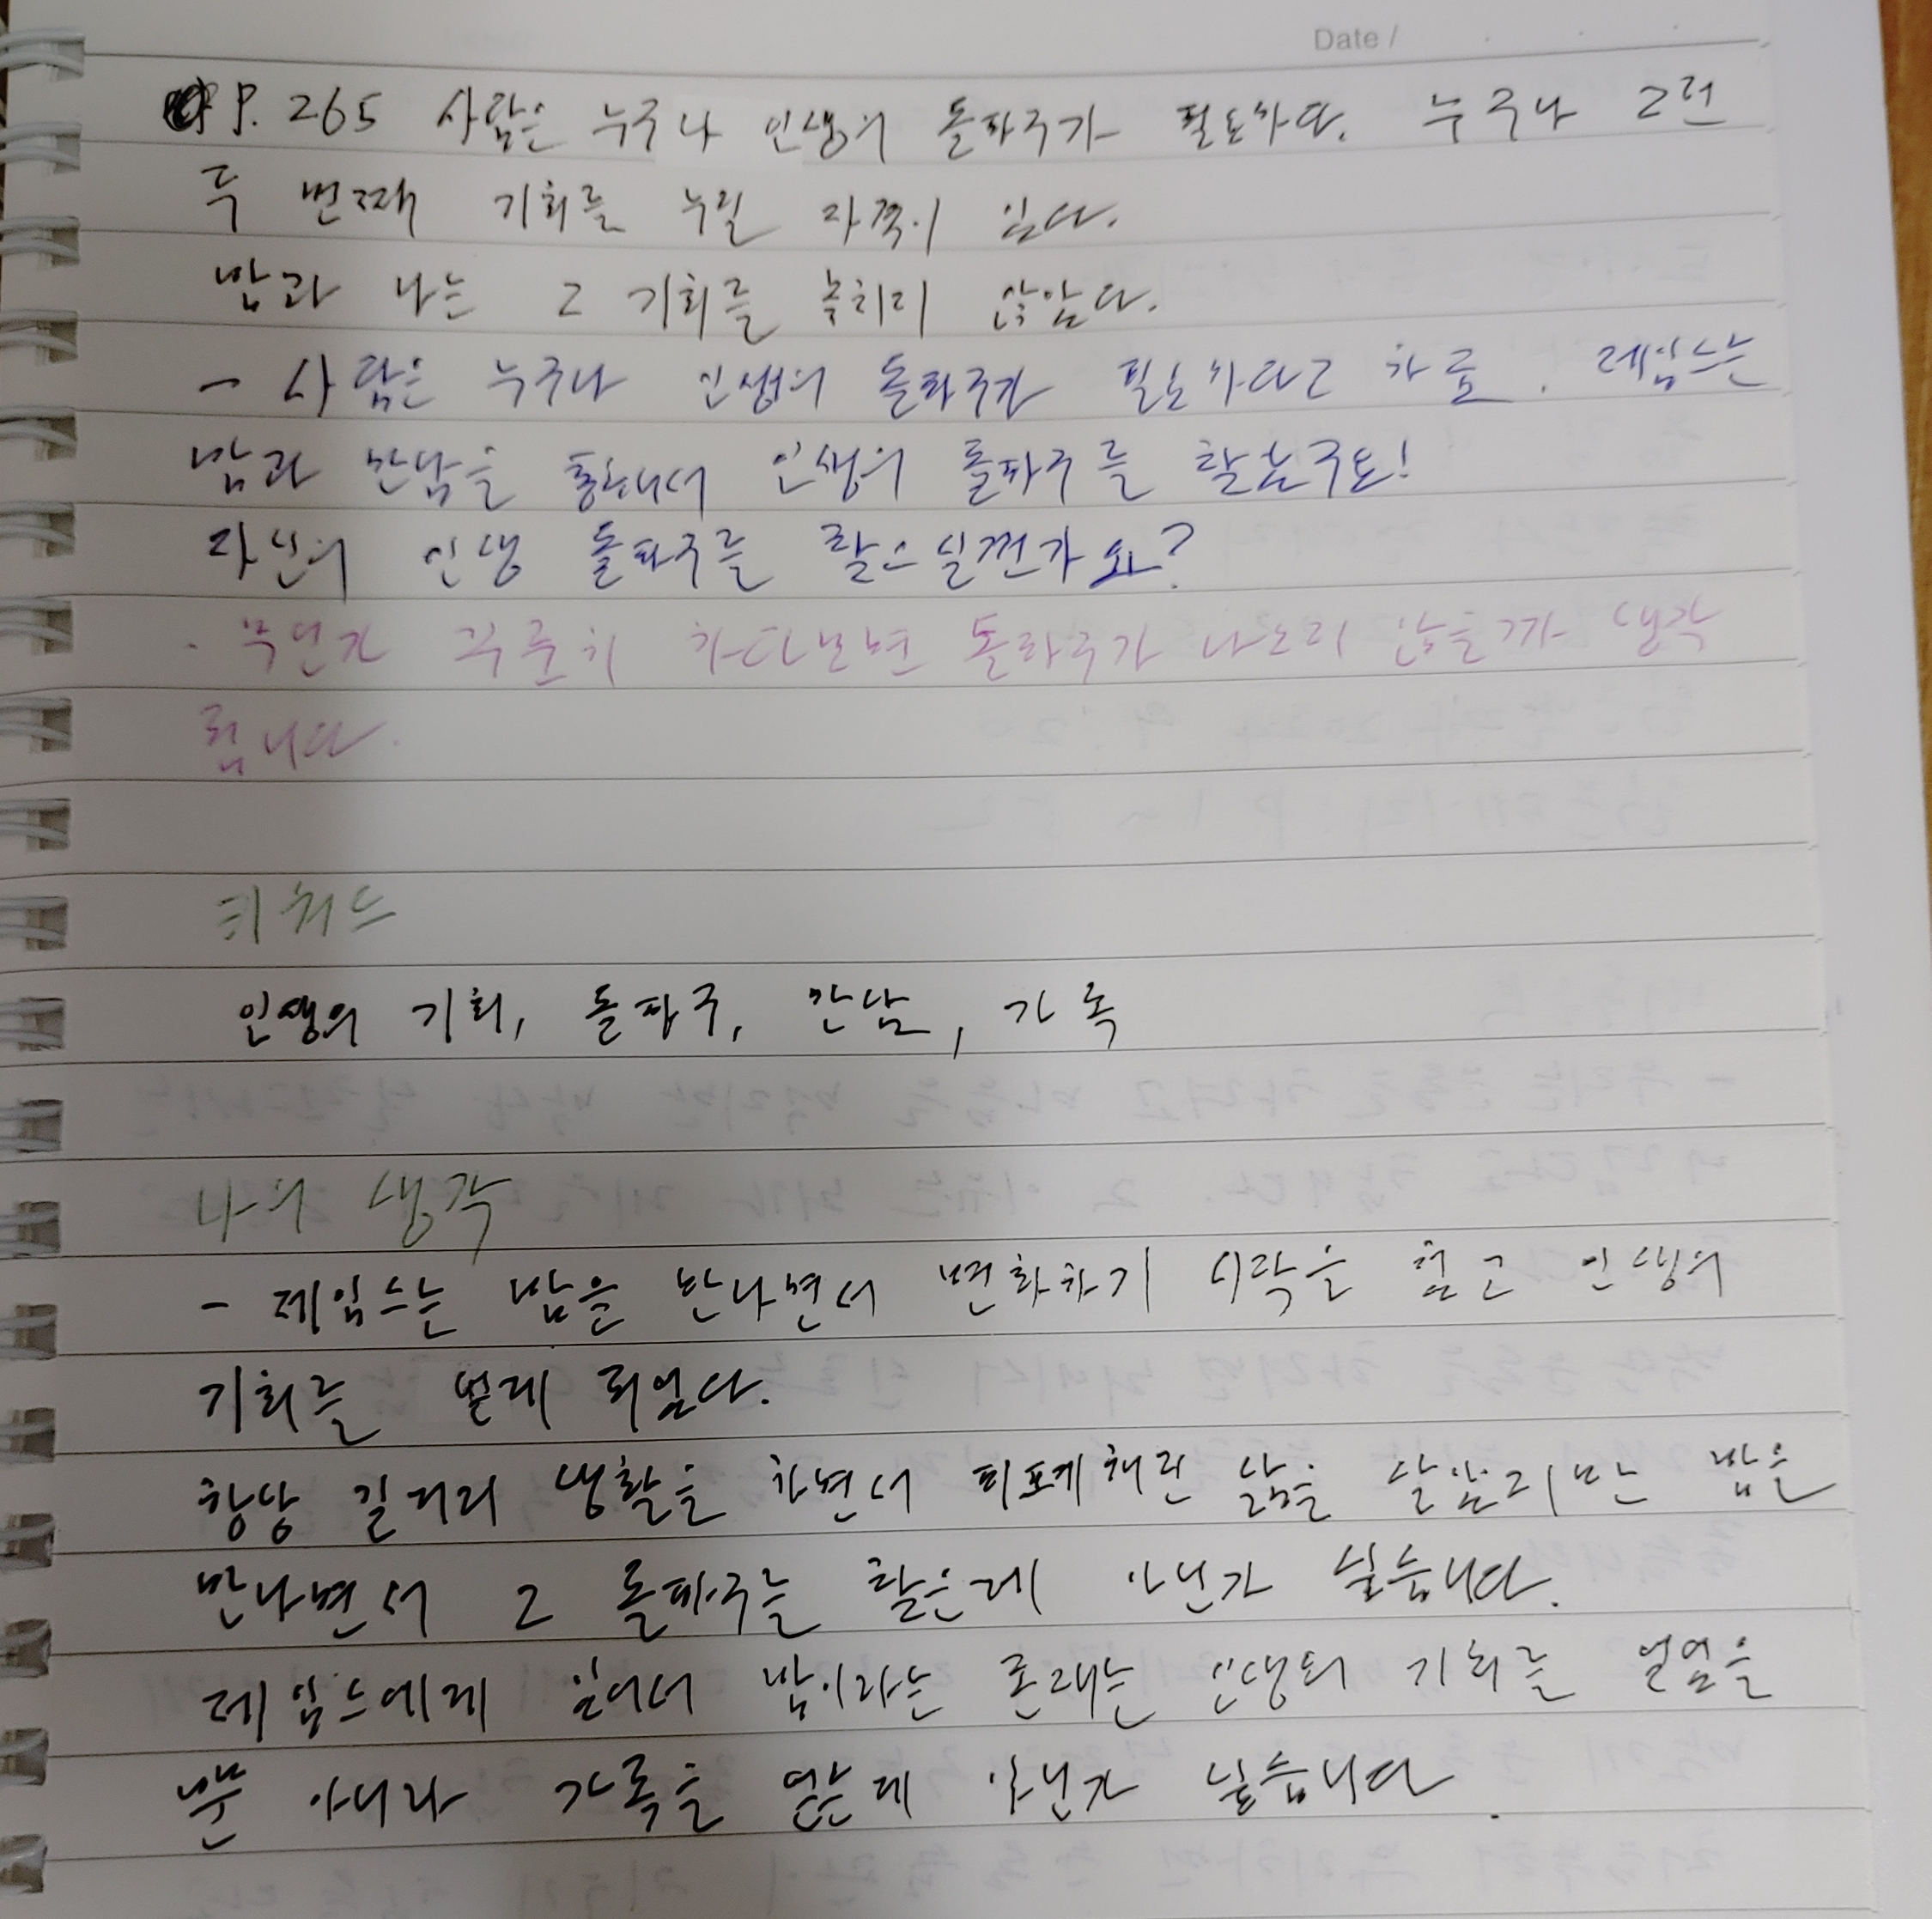 Date /
P. 265 사람은 누구나 인생의 돌파구가 필요하다. 누구나 그런
두 번째 기회를 누릴 자격이 있다.
밥과 나는 그 기회를 놓치지 않았다.
- 사람은 누구나 인생의 돌파구가 필요하다고 하죠. 제임스는
밥과 만남을 통해서 인생의 돌파구를 찾는구요!
자신의 인생 돌파구를 찾으실껀가요?
· 무언가 꾸준히 하다보면 돌파구가 나오지 않을까 생각
됩니다.
키워드
인생의 기회, 돌파구, 만남, 가족
나의 생각
- 제임스는 밥을 만나면서 변화하기 시작을 했고 인생의
기회를 얻게 되었다.
항상 길거리 생활을 하면서 피포케해진 삶을 살았지만 밥을
만나면서 그 돌파구를 찾은게 아닌가 싶습니다.
제임스에게 있어서 밥이라는 존재는 인생의 기회를 얻었을
뿐 아니라 가족을 얻은게 아닌가 싶습니다.